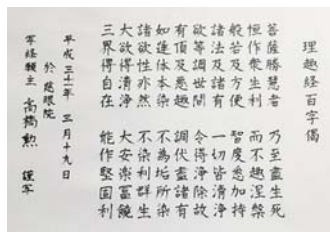 理趣経百字偈
菩薩勝慧者 乃至盡生死
恒作衆生利 而不趣涅槃
般若及方便 智度悉加持
諸法及諸有 一切皆清浄
欲等調世間 令得浄除故
有頂及悪趣 調伏盡諸有
如蓮体本染 不為垢所染
諸欲性亦然 不染利群生
大欲得清浄 大安楽富饒
三界得自在 能作堅固利
平成三十一年 三月十九日
於 慈眼院
写経願主 高橋勲 謹写